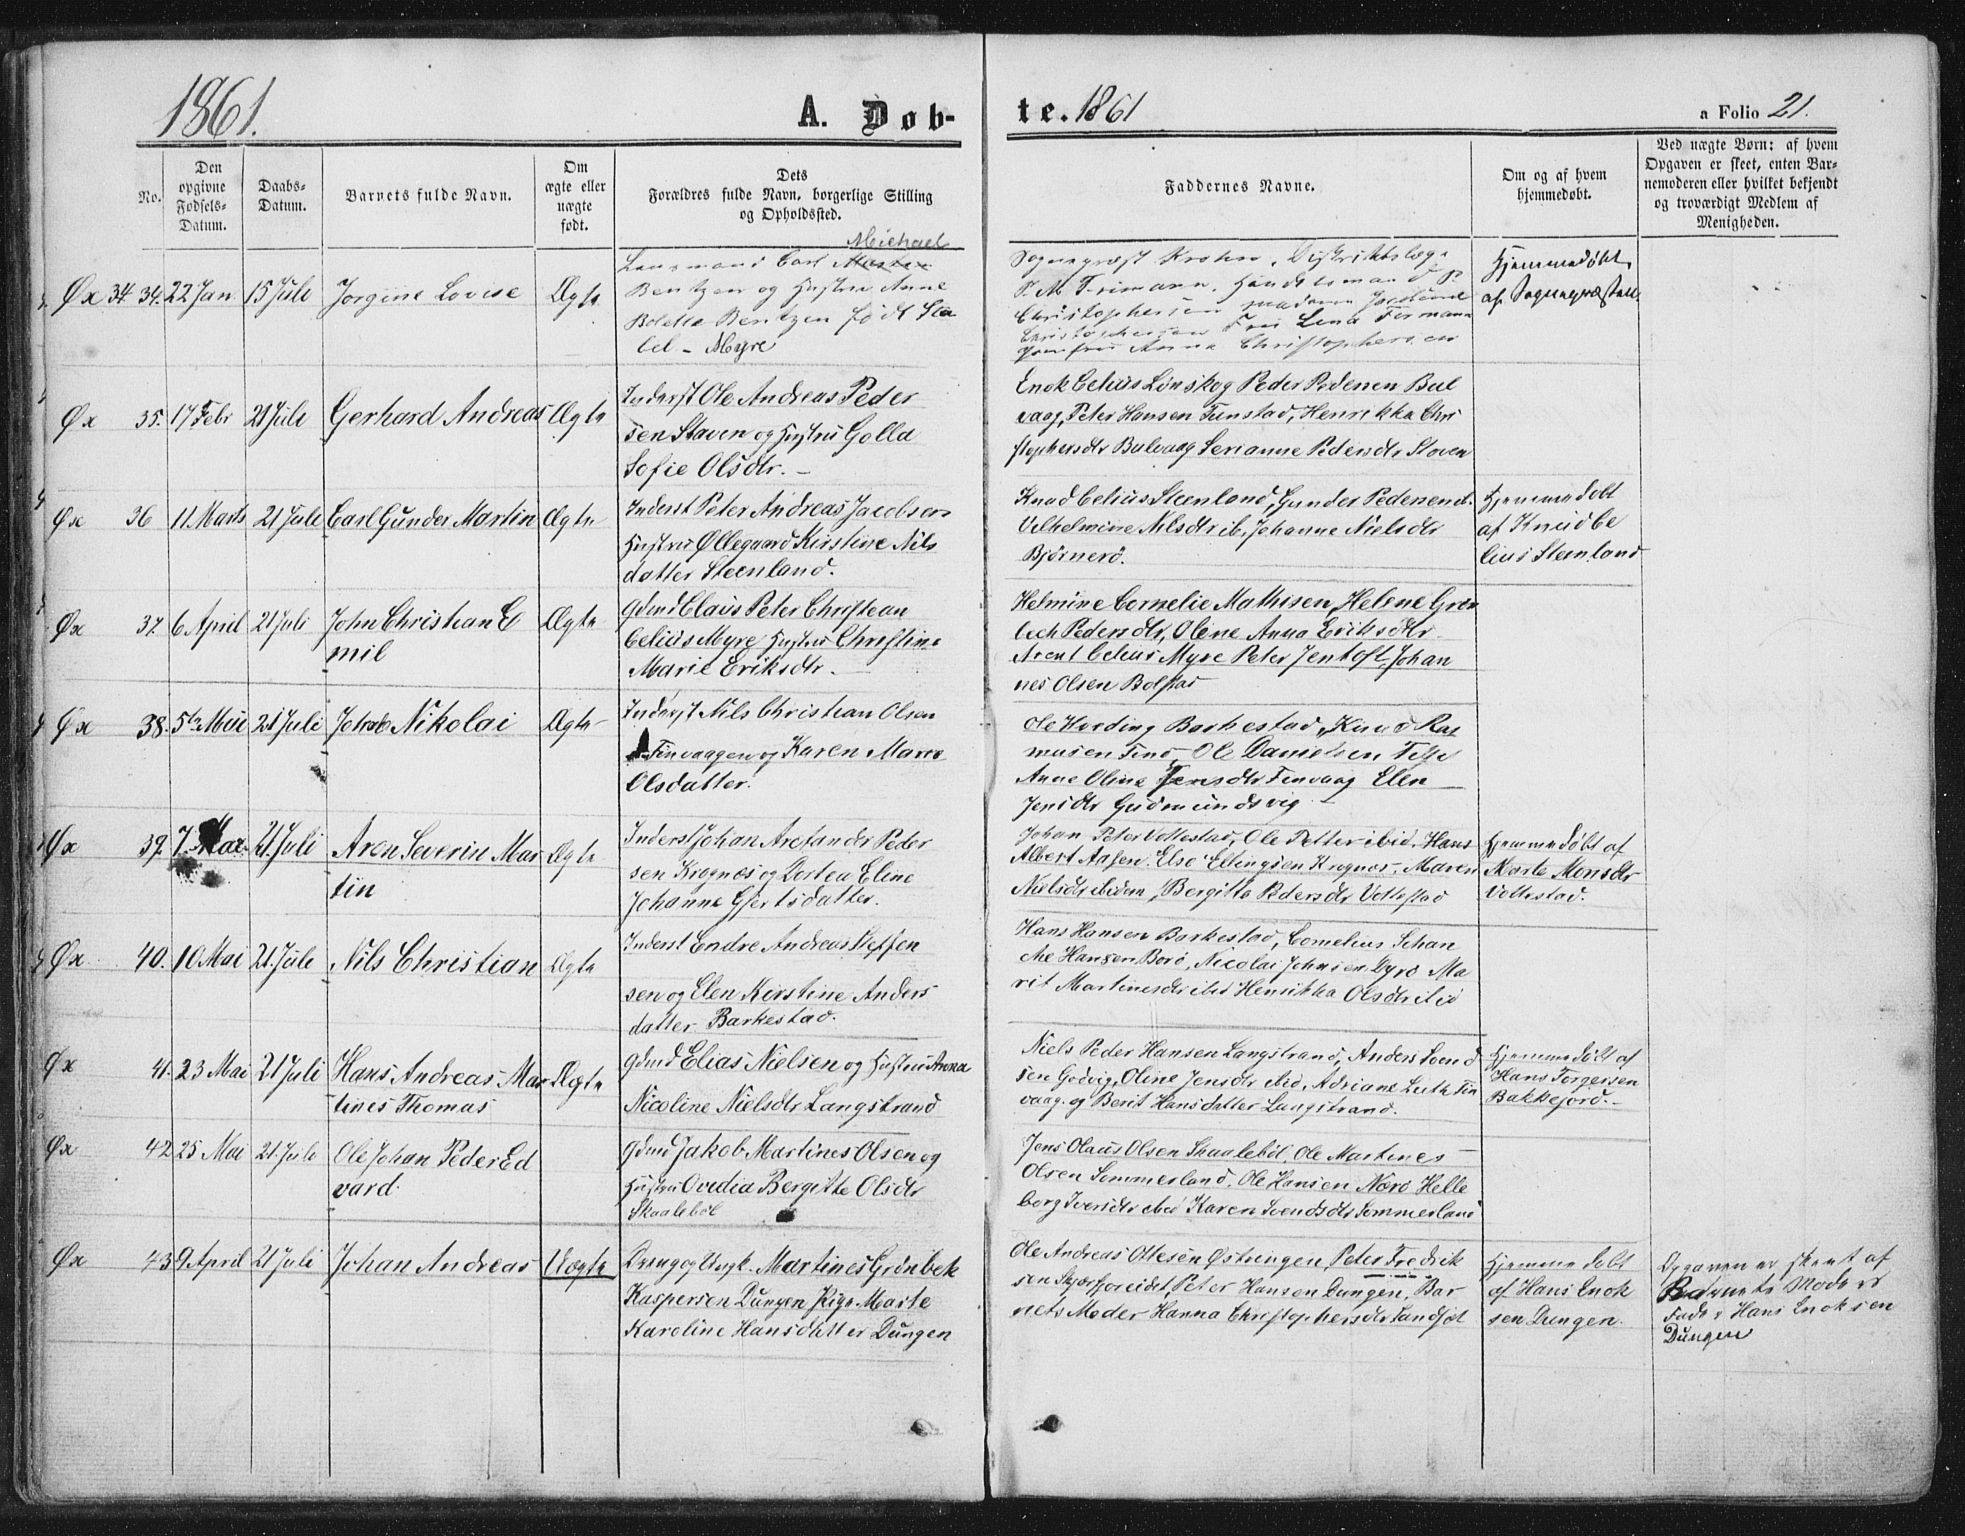 1861.
A. Døb-
te. 1861
a Folio 21.
No.
Den opgivne Fødsels-Datum.
Daabs-Datum.
Barnets fulde Navn.
Om ægte eller uægte født.
Dets Forældres fulde Navn, borgerlige Stilling og Opholdssted.
Faddernes Navne.
Om og af hvem hjemmedøbt.
Ved uægte Børn: af hvem Opgaven er skeet, enten Barnemoderen eller hvilket bekjendt og troværdigt Medlem af Menigheden.
Øx 34. 34. 22 Jan 15 Juli Jorgine Lovise Ægte
Michael
Lensmand Carl
Bentzen og Hustru Anne
Boletta Bentzen født Sta
bel - Myre
Sognepræst Krohn, Distriktslæge
P. M. Feimann, Handelsmand P.
Christophersen Madame
Christophersen Frøi Lena
Jomfru Anna Christophersen
Hjemmedøbt
af Sognepræsten
Øx 35. 17 Febr 21 Juli Gerhard Andreas Ægte
Inderst Ole Andreas Peder
sen Staven og Hustru Golla
Sofie Olsdtr. -
Enok Celius Lonskog Peder Pedersen Bul
vaag, Peter Hansen Tunstad, Henrikka Chri
stophersdtr Bulvaag Serianne Pedersdtr Stoven
Øx 36 11 Marts 21 Juli Carl Gunder Martin Ægte
Inderst Peter Andreas Jacobsen
Hustru Øllegaard Kirstine Nils
datter Steenland.
Knud Celius Steenland, Gunder Pedersen
Vilhelmine Nilsdtr ib, Johanne Nielsdtr
Bjørnerö.
Hjemmedøbt
af Knud Ce
lius Steenland
Øx 37. 6 April 21 Juli John Christian E
mil
Ægte
Gdmd Claus Peter Christean
Celius Myre Hustru Christine
Marie Eriksdtr. -
Helmine Cornelie Mathisen, Helene Grøn
bech Pedersdtr, Olene Anna Eriksdtr
Arent Celius Myre Peter Jentoft Johan
nes Olsen Bolstad
Øx 38. 5te Mai 21 Juli Jakob Nikolai Ægte
Inderst Nils Christian Olsen
Finvaagen og Karen Marie
Olsdatter.
Ole Hveding Barkestad, Knud Ras
musen Tinö, Ole Danielsen
Anne Oline Jensdtr Finvaag Elen
Jensdtr Gudmundsvig
Øx 39. 7. Mai 21. Juli Aren Severin Mar
tin
Ægte
Inderst Johan Aretander Peder
sen Krognæs og Dortea Eline
Johanne Gjertsdatter.
Johan Peter Vottestad, Ole Petter ibid, Hans
Albert Aasen, Else Ellingsen Krognæs, Maren
Nielsdtr ibidem, Bergitte Pedersdtr Vottestad
Hjemmedøbt af
Marte Monsdtr
Vottestad.
Øx. 40. 10 Mai 21. Juli Nils Christian Ægte
Inderst Endre Andreas Steffen
sen og Elen Kirstine Anders
datter Barkestad.
Hans Hansen Barkestad, Cornelius Schan
che Hansen Borö, Nicolai Johnsen Dyrö Ma
rit Martinesdtr ibid Henrikka Olsdtr ibid
Øx 41. 23 Mai 21 Juli Hans Andreas Mar
tines Thomas
Ægte
Gdmd Elias Nielsen og Hustru Anna
Nicoline Nielsdtr Langstrand
Niels Peder Hansen Langstrand, Anders Svend
sen Godvig, Oline Jensdtr ibid, Adriane Luth Fin
vaag. og Berit Hansdatter Langstrand.
Hjemmedøbt af
Hans Torgersen
Bakkejord. -
Øx 42 25 Mai 21. Juli Ole Johan Peder Ed
vard.
Gdmd Jakob Martines Olsen og
Hustru Ovedia Bergitte Olsdtr
Skaalebøl
Jens Olaus Olsen Skaalebøl, Ole Martines
Olsen Sommerland, Ole Hansen Nærö Helle
borg Iversdtr ibid Karen Svendsdtr Sommerland
Øx 43 9 April 21 Juli Johan Andreas Uægte
Dreng og Ungk. Martines Grønbek
Kaspersen Dungen Pige Marte
Karoline Hansdatter Dungen
Ole Andreas Ottesen Østringen, Peter Fredrik
sen Skjærforeidet, Peter Hansen Dungen, Bar
nets Moder Hanna Christophersdtr Sandsöt
Hjemmedøbt
af Hans Enok
sen Dungen.
Opgaven er skeet af
Barnets Moders
Fader Hans Enoksen
Dungen